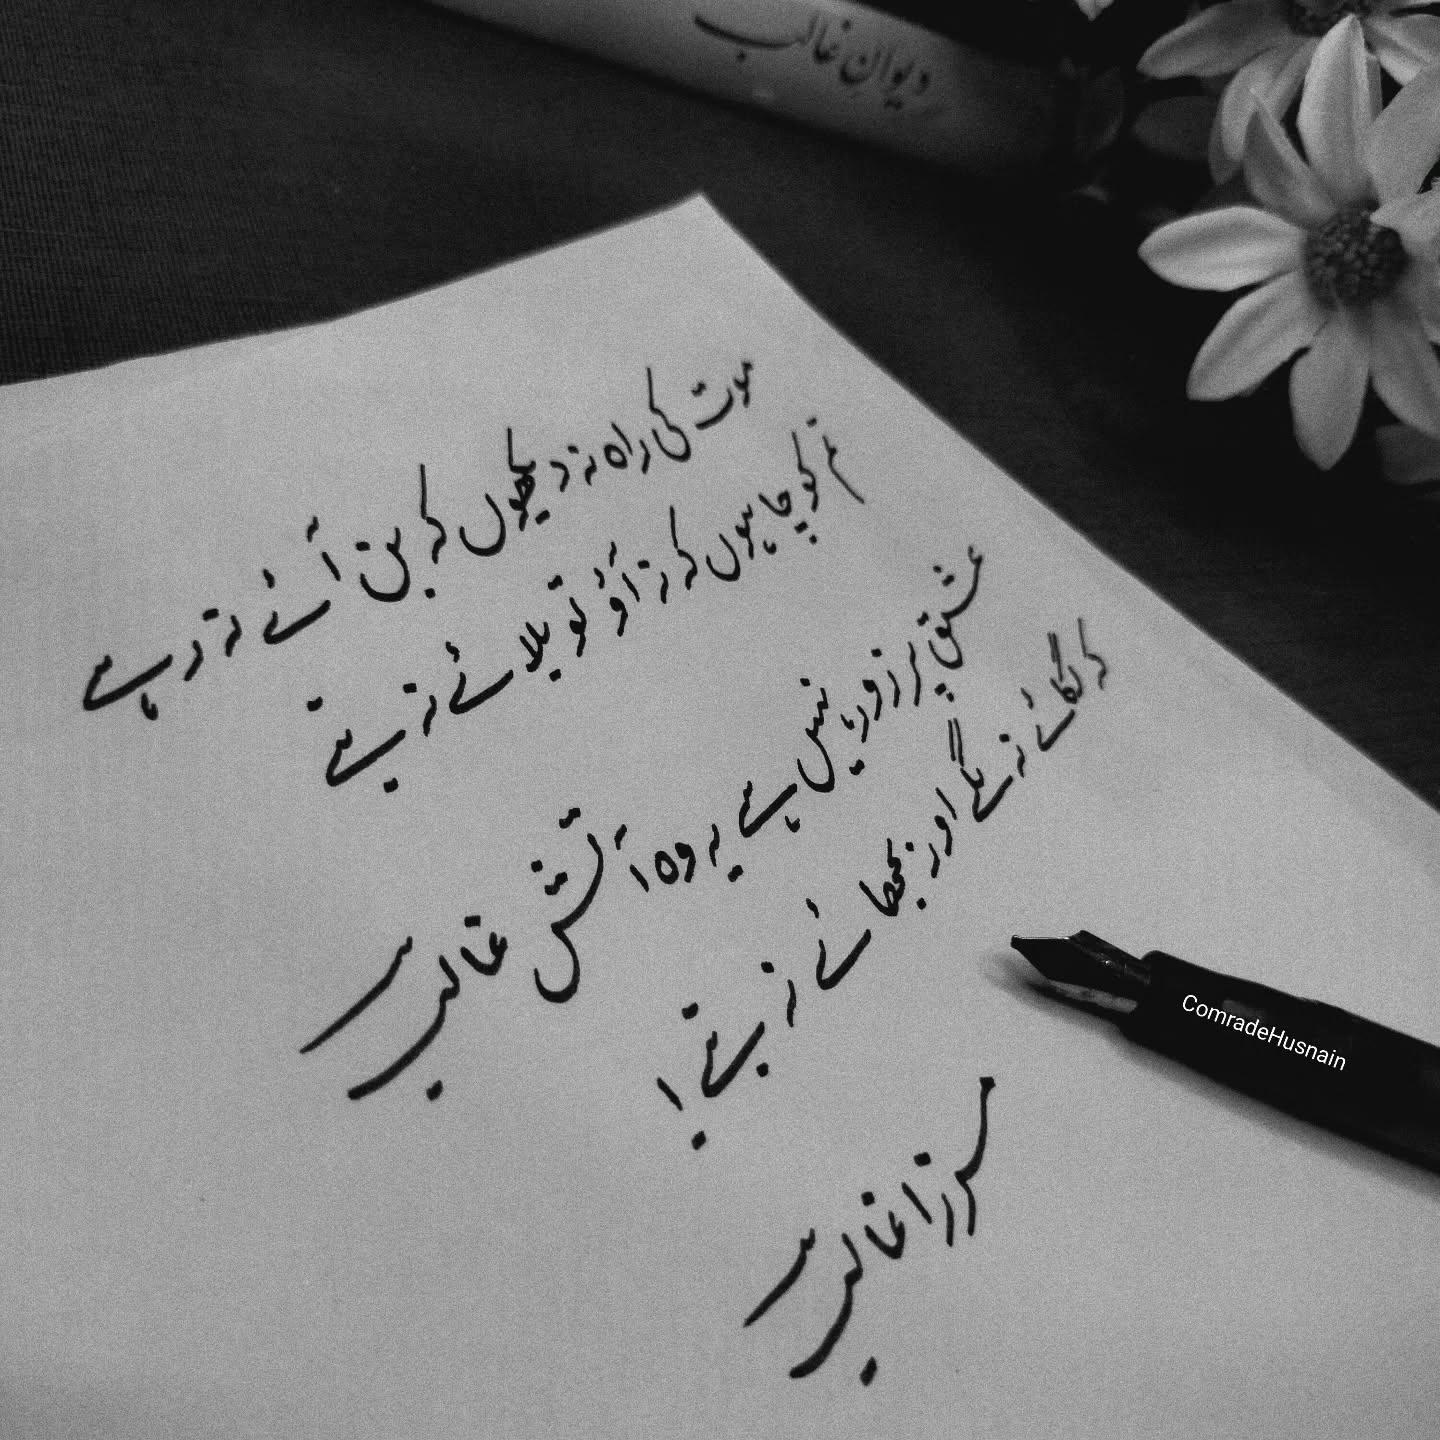 دیوانِ غالب
موت کی راہ نہ دیکھوں کہ بن آئے نہ رہے
تم کو چاہوں کہ نہ آؤ تو بلائے نہ بنے
عشق پر زور نہیں ہے یہ وہ آتش غالب
کہ لگائے نہ لگے اور بجھائے نہ بنے!
مرزا غالب
ComradeHusnain